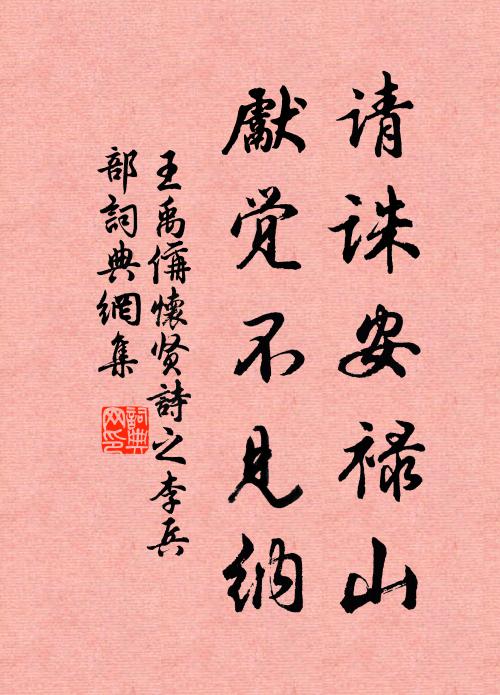 请诛安禄山
献觉不见纳
王禹偁怀贤詩之李兵
部詞典網集
詞典
网印